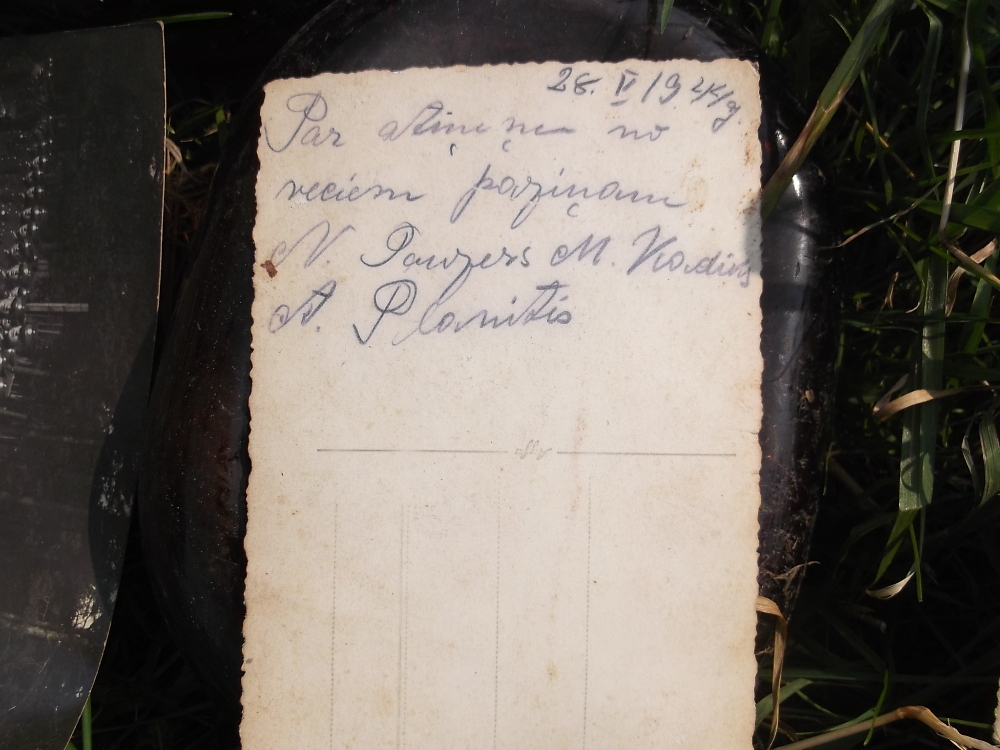 28. V 1944g.
Par atmiņu no
veciem paziņam
N. Pauzers M.
A. Planitis